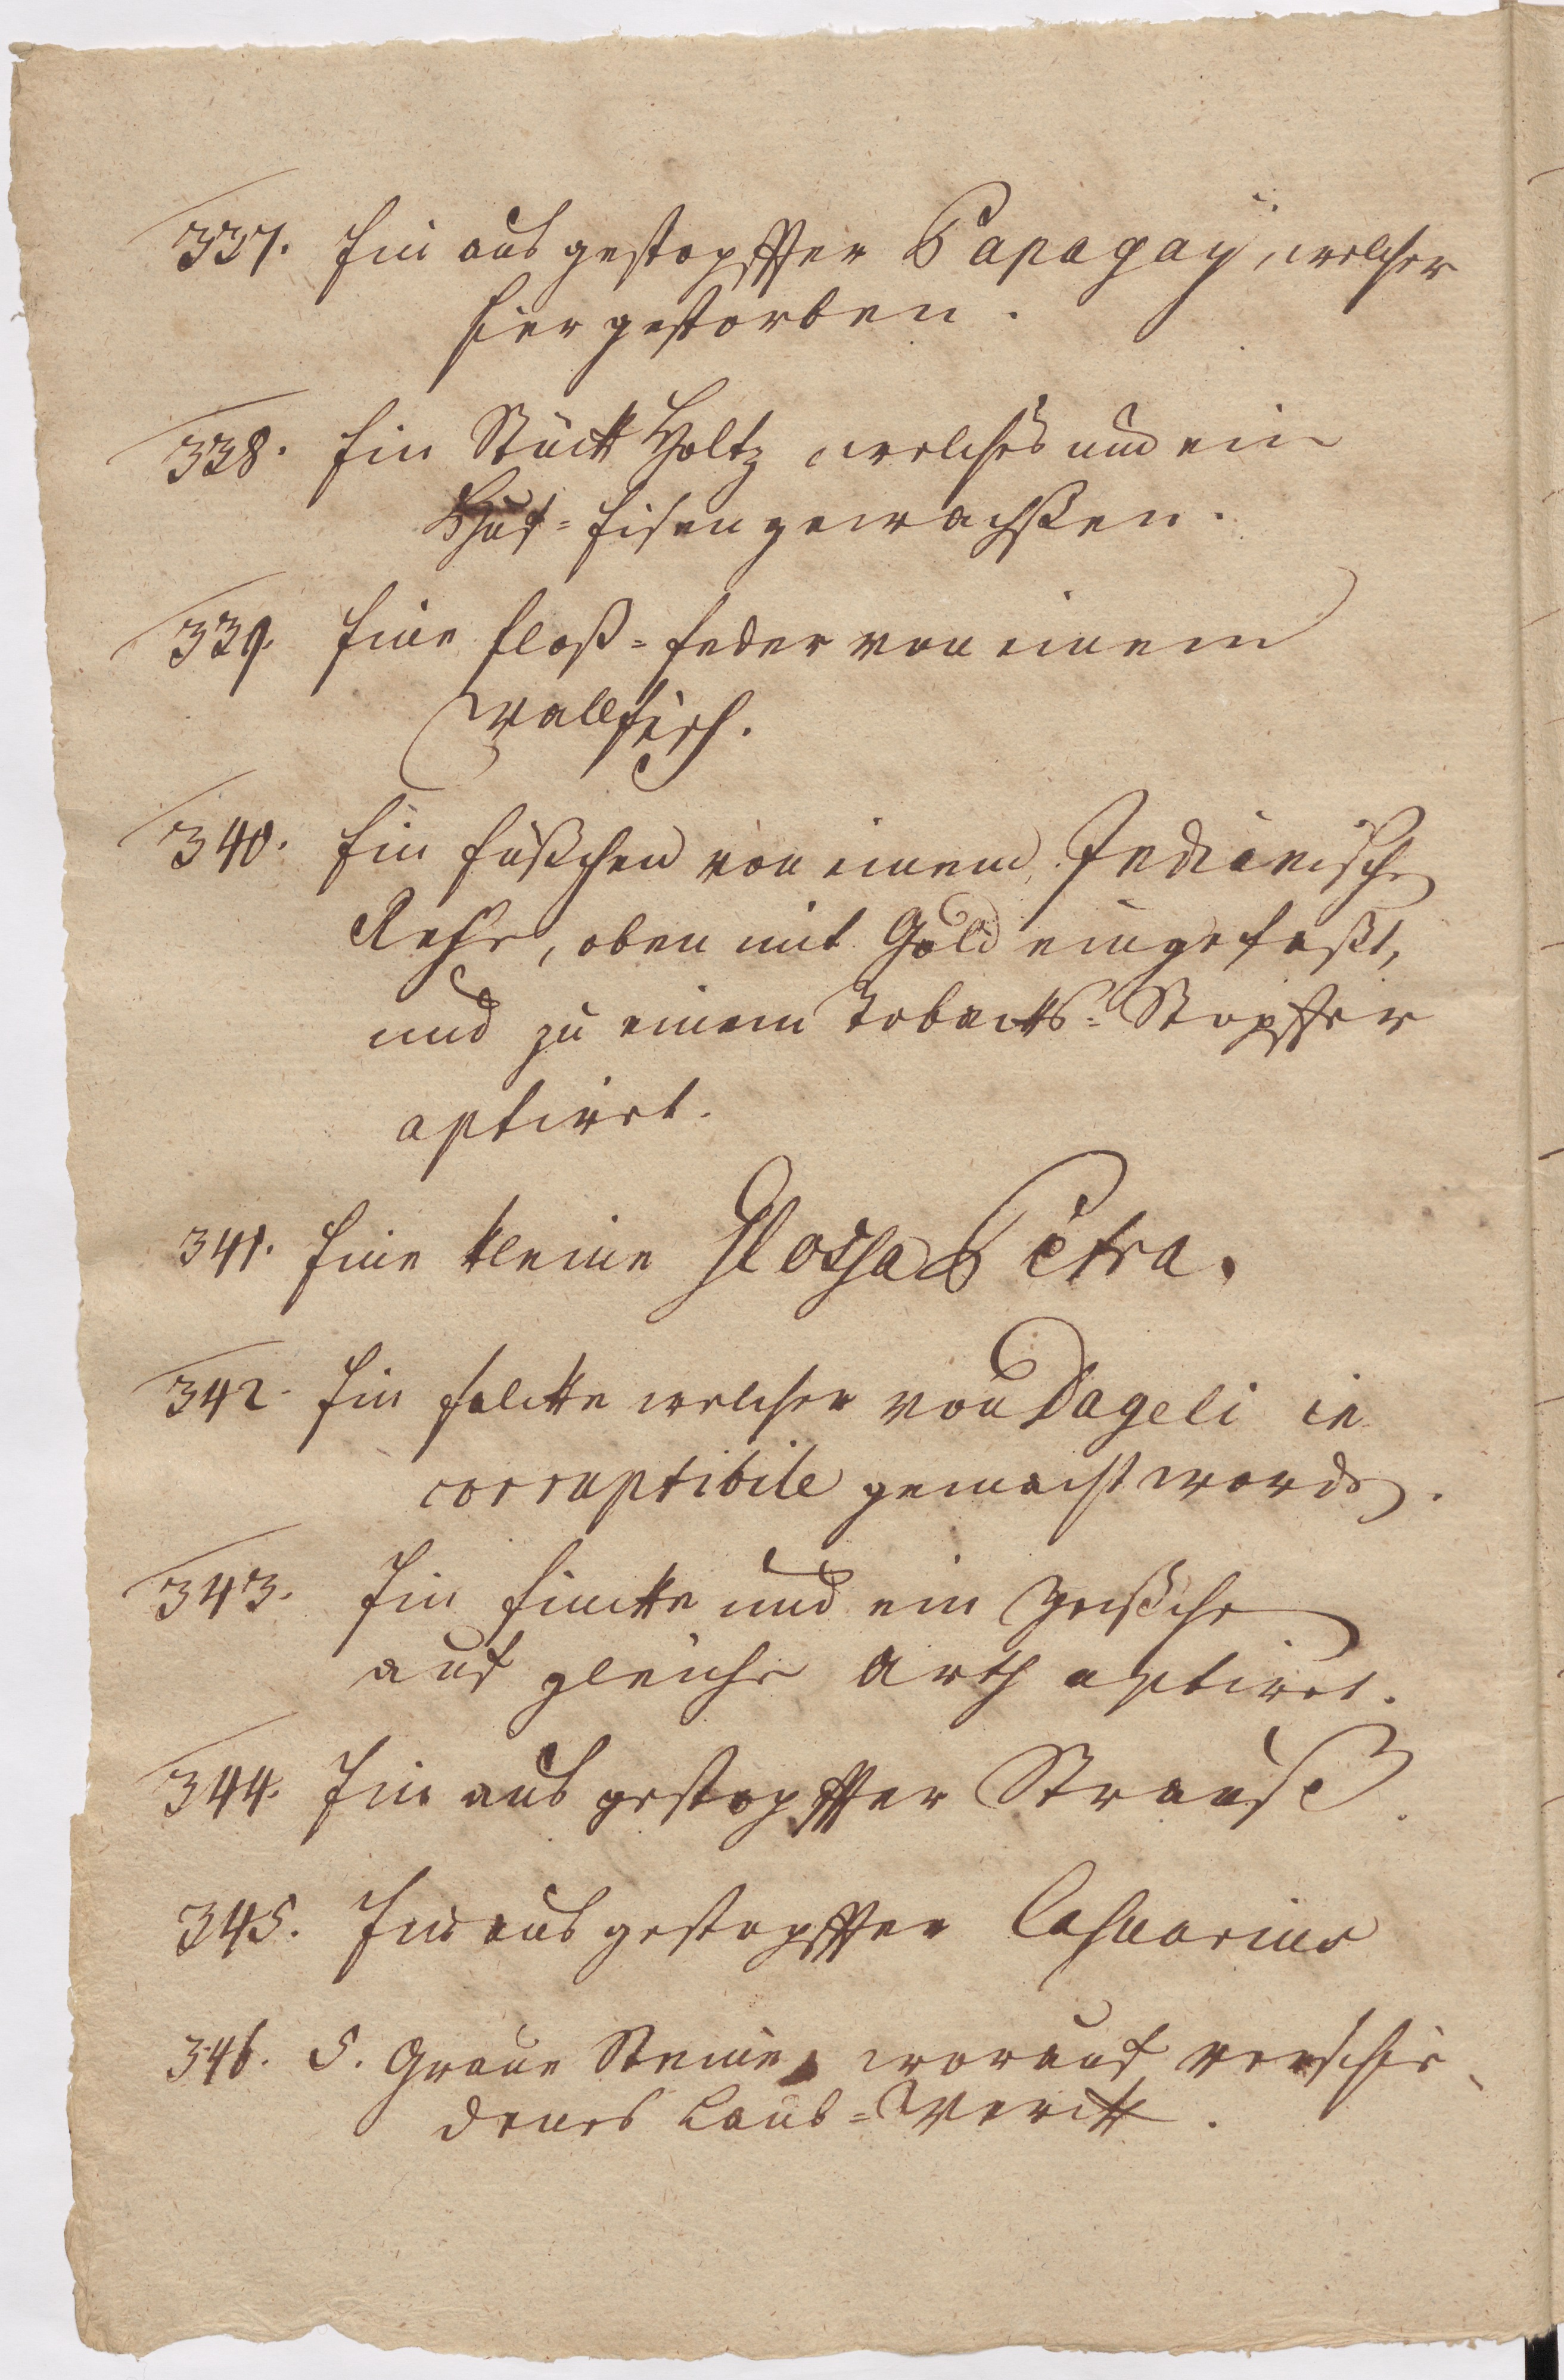 337. Ein ausgestopffter Papagaÿ, welcher
hier gestorben.
338. Ein Stück Holtz welches um ein
Huf=Eisen gewachßen.
339. Eine Floß=Feder von einem
Wallfisch.
340. Ein Füßchen von einem Indianische
Rehe, oben mit Gold eingefaßt,
und zu einem Tobacks=Stopffer
aptiret.
341. Eine kleine Glossa Petra.
342. Ein Falcke welcher von Dageli in
corruptibile gemacht worden.
343. Ein Fincke und ein Zeißchen
auf gleiche Arth aptiret.
344. Ein ausgestopffter Strauß.
345. Ein ausgestopffter Casuarius
346. 5. Graue Steine, worauf verschie
denes Laub=Werck.